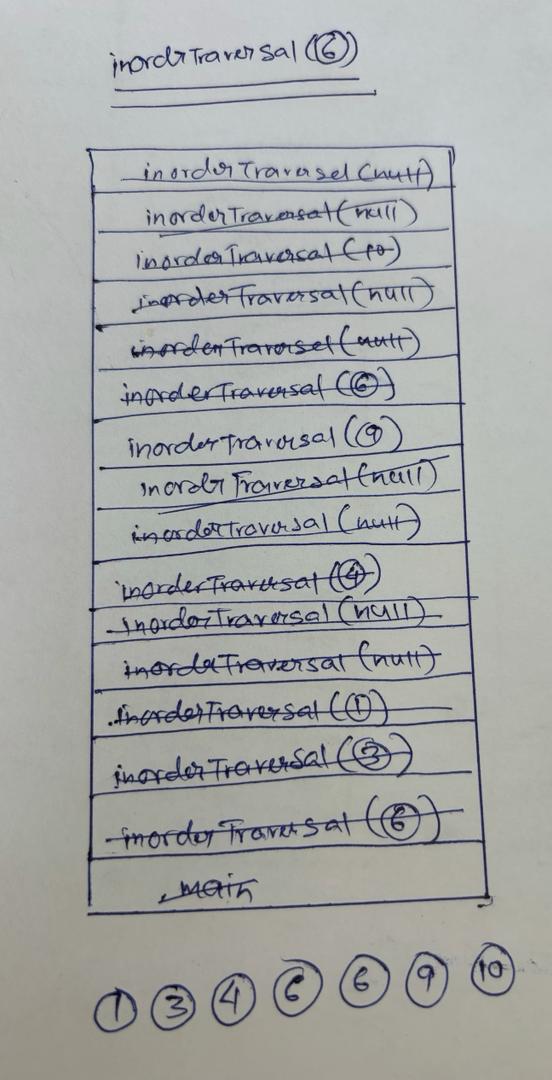 inordrTraversal (⑥)
inorderTraversel (null)
inorderTraversal (null)
inorderTraversal (10)
inorderTraversal (null)
inorderTraversel (null)
inorderTraversal (⑥)
inorderTraversal (⑨)
inordrTraversal (null)
inorderTraversal (null)
inorderTraversal (④)
inorderTraversal (null)
inorderTraversal (null)
inorderTraversal (①)
inorderTraversal (③)
inorderTraversal (⑥)
main
① ③ ④ ⑥ ⑥ ⑨ ⑩